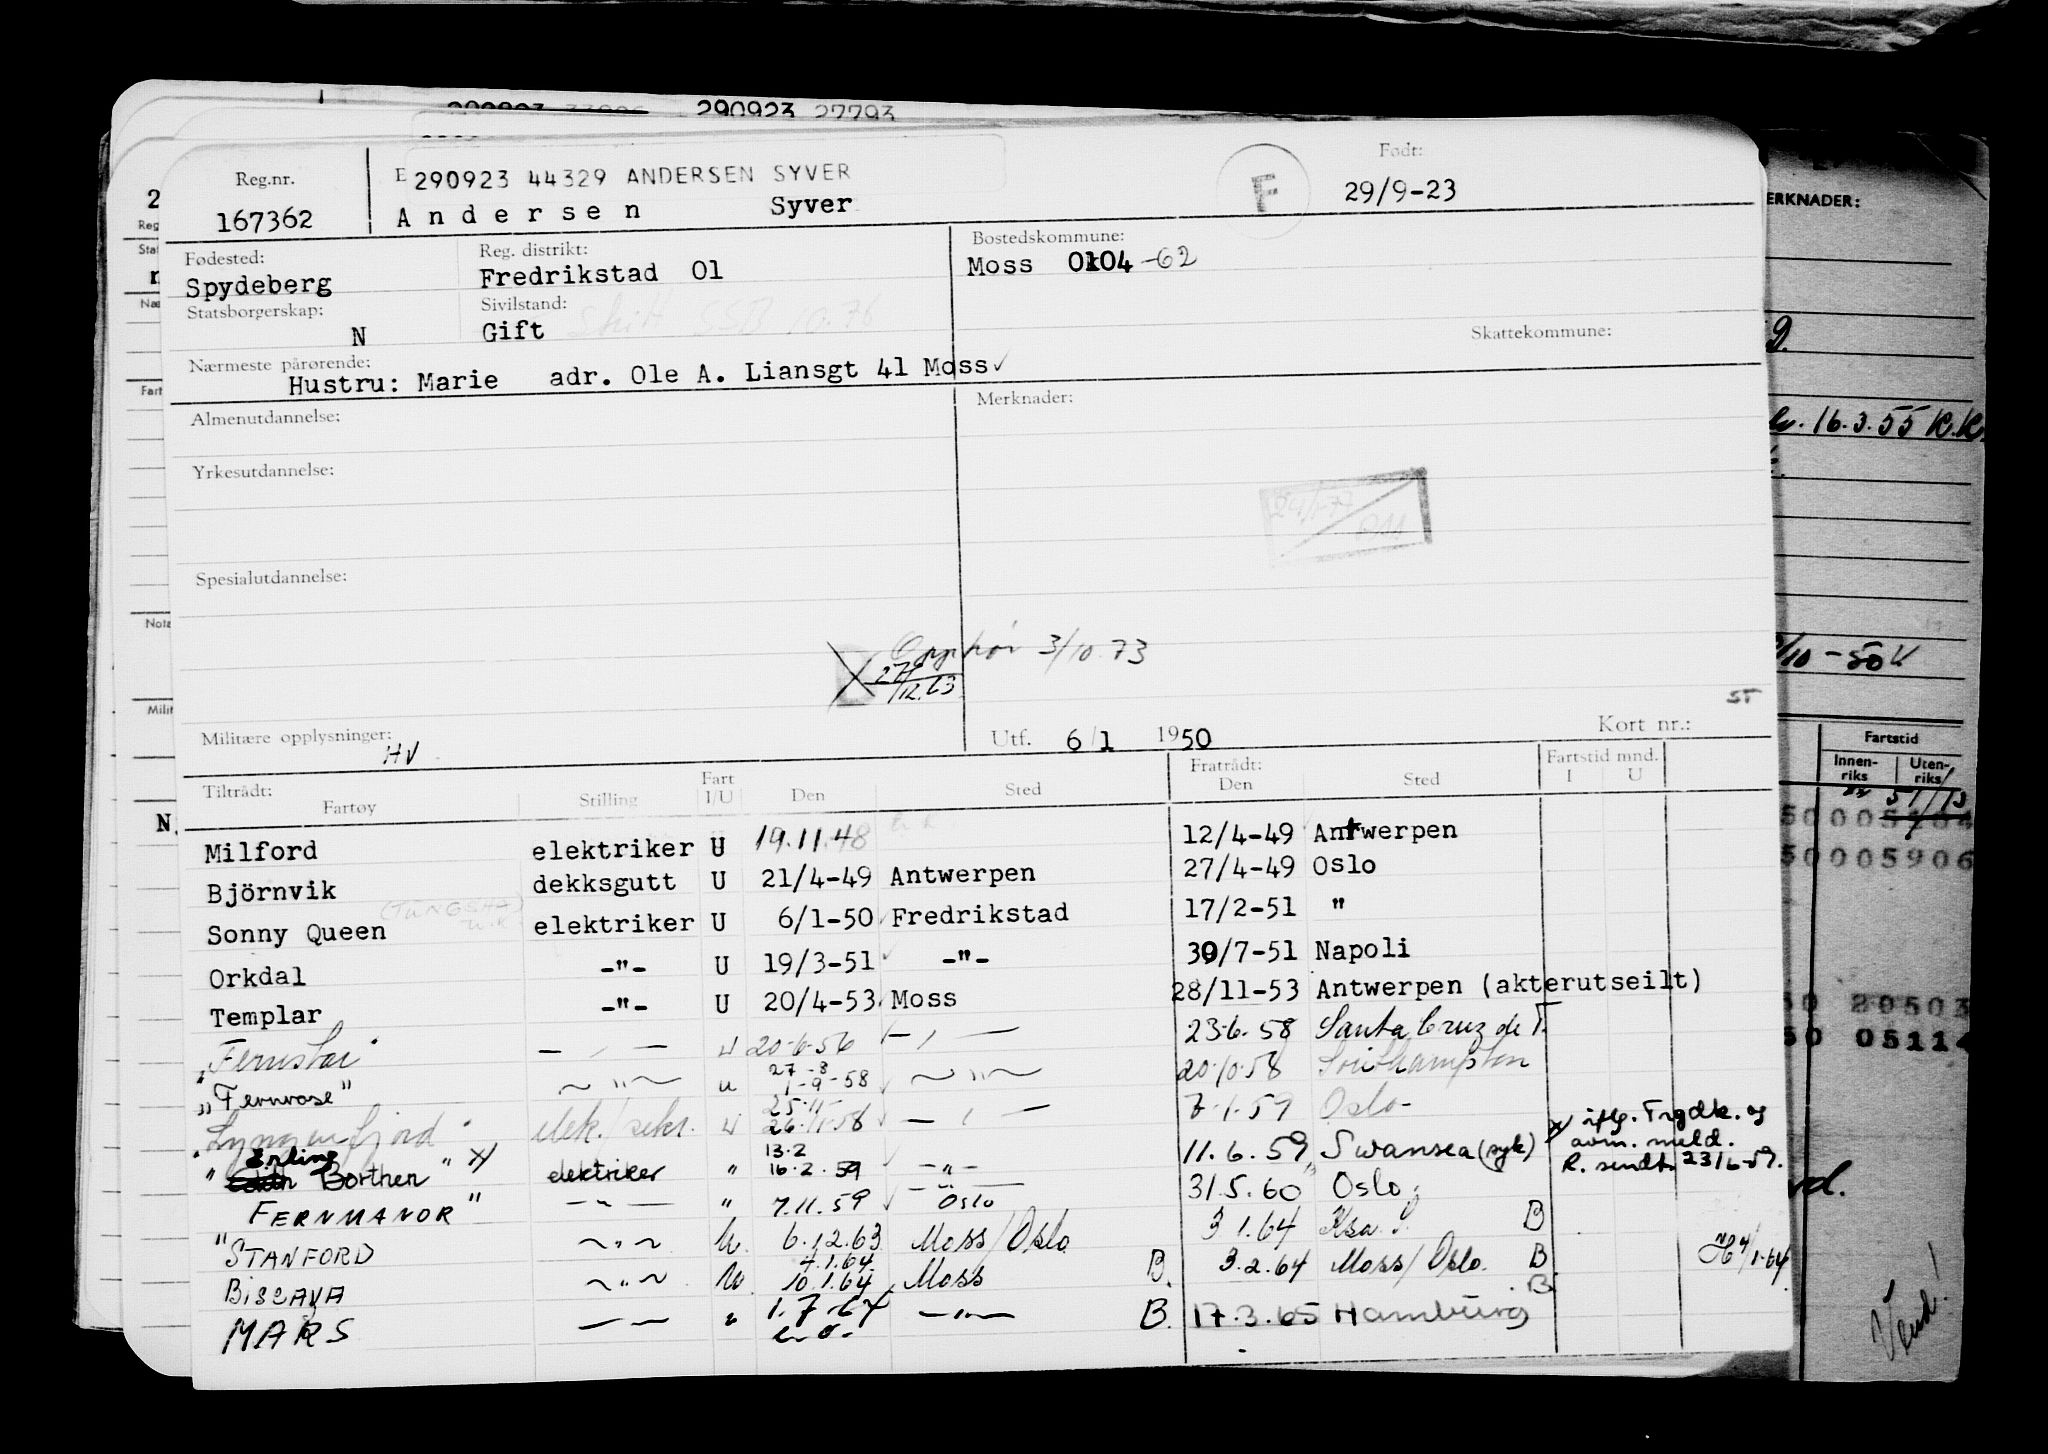 290923 27793
Reg.nr. E 290923 44329 ANDERSEN SYVER F Født:
167362 Andersen Syver 29/9-23
Fødested: Reg. distrikt: Bostedskommune:
Spydeberg Fredrikstad 01 Moss 0104 -62
Statsborgerskap: Sivilstand:
N Gift Skilt SSB 10.76 Skattekommune:
Nærmeste pårørende:
Hustru: Marie adr. Ole A. Liansgt 41 Moss
Almenutdannelse: Merknader:
Yrkesutdannelse:
Spesialutdannelse:
Opphør 3/10.73
27/12.63
ST
Militære opplysninger: HV Utf. 6/1 1950 Kort nr.:
Tiltrådt: Fartøy Stilling Fart I/U Den Sted Fratrådt: Den Sted Fartstid mnd. I U
Milford elektriker U 19.11.48 12/4-49 Antwerpen
Björnvik dekksgutt U 21/4-49 Antwerpen 27/4-49 Oslo
Sonny Queen elektriker U 6/1-50 Fredrikstad 17/2-51 "
Orkdal -"- U 19/3-51 -"- 30/7-51 Napoli
Templar -"- U 20/4-53 Moss 28/11-53 Antwerpen (akterutseilt)
"Fernstar" - , - U 20-6-56 - , - 23-6-58 Santa Cruz de T.
"Fernrose" ~ " ~ u 27-8 1-9-58 ~ " ~ 20-10-58 Southampton
"Lyngenfjord" elek./ U 25-11- 26/11-58 - , - 7-1-59 Oslo
"Erling Borthen" x) elektriker " 13.2 16.2.59 -"- 11.6.59 Swansea (syk) x) iflg. Trgdk. og avm. meld. R. sendt 23/6-59.
FERNMANOR" - " - " 7.11.59 Oslo 31.5.60 Oslo
"STANFORD ~ " ~ U. 6.12.63 Moss/Oslo 3 1.64 B
BISCAYA ~ " ~ U 4.1.64 10.1.64 Moss B. 3.2.64 Moss/Oslo. B 4/1-64
MARS - " - " 1.7.64 - " - B. 17.3.65 Hamburg B
MERKNADER:
16.3.55 K.K.
/10-50
Fartstid
Innenriks Utenriks
50005906
50 20503
50 05114
Vend!